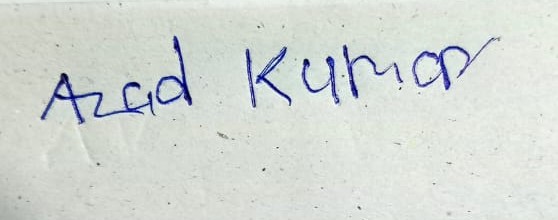 Azad Kumar